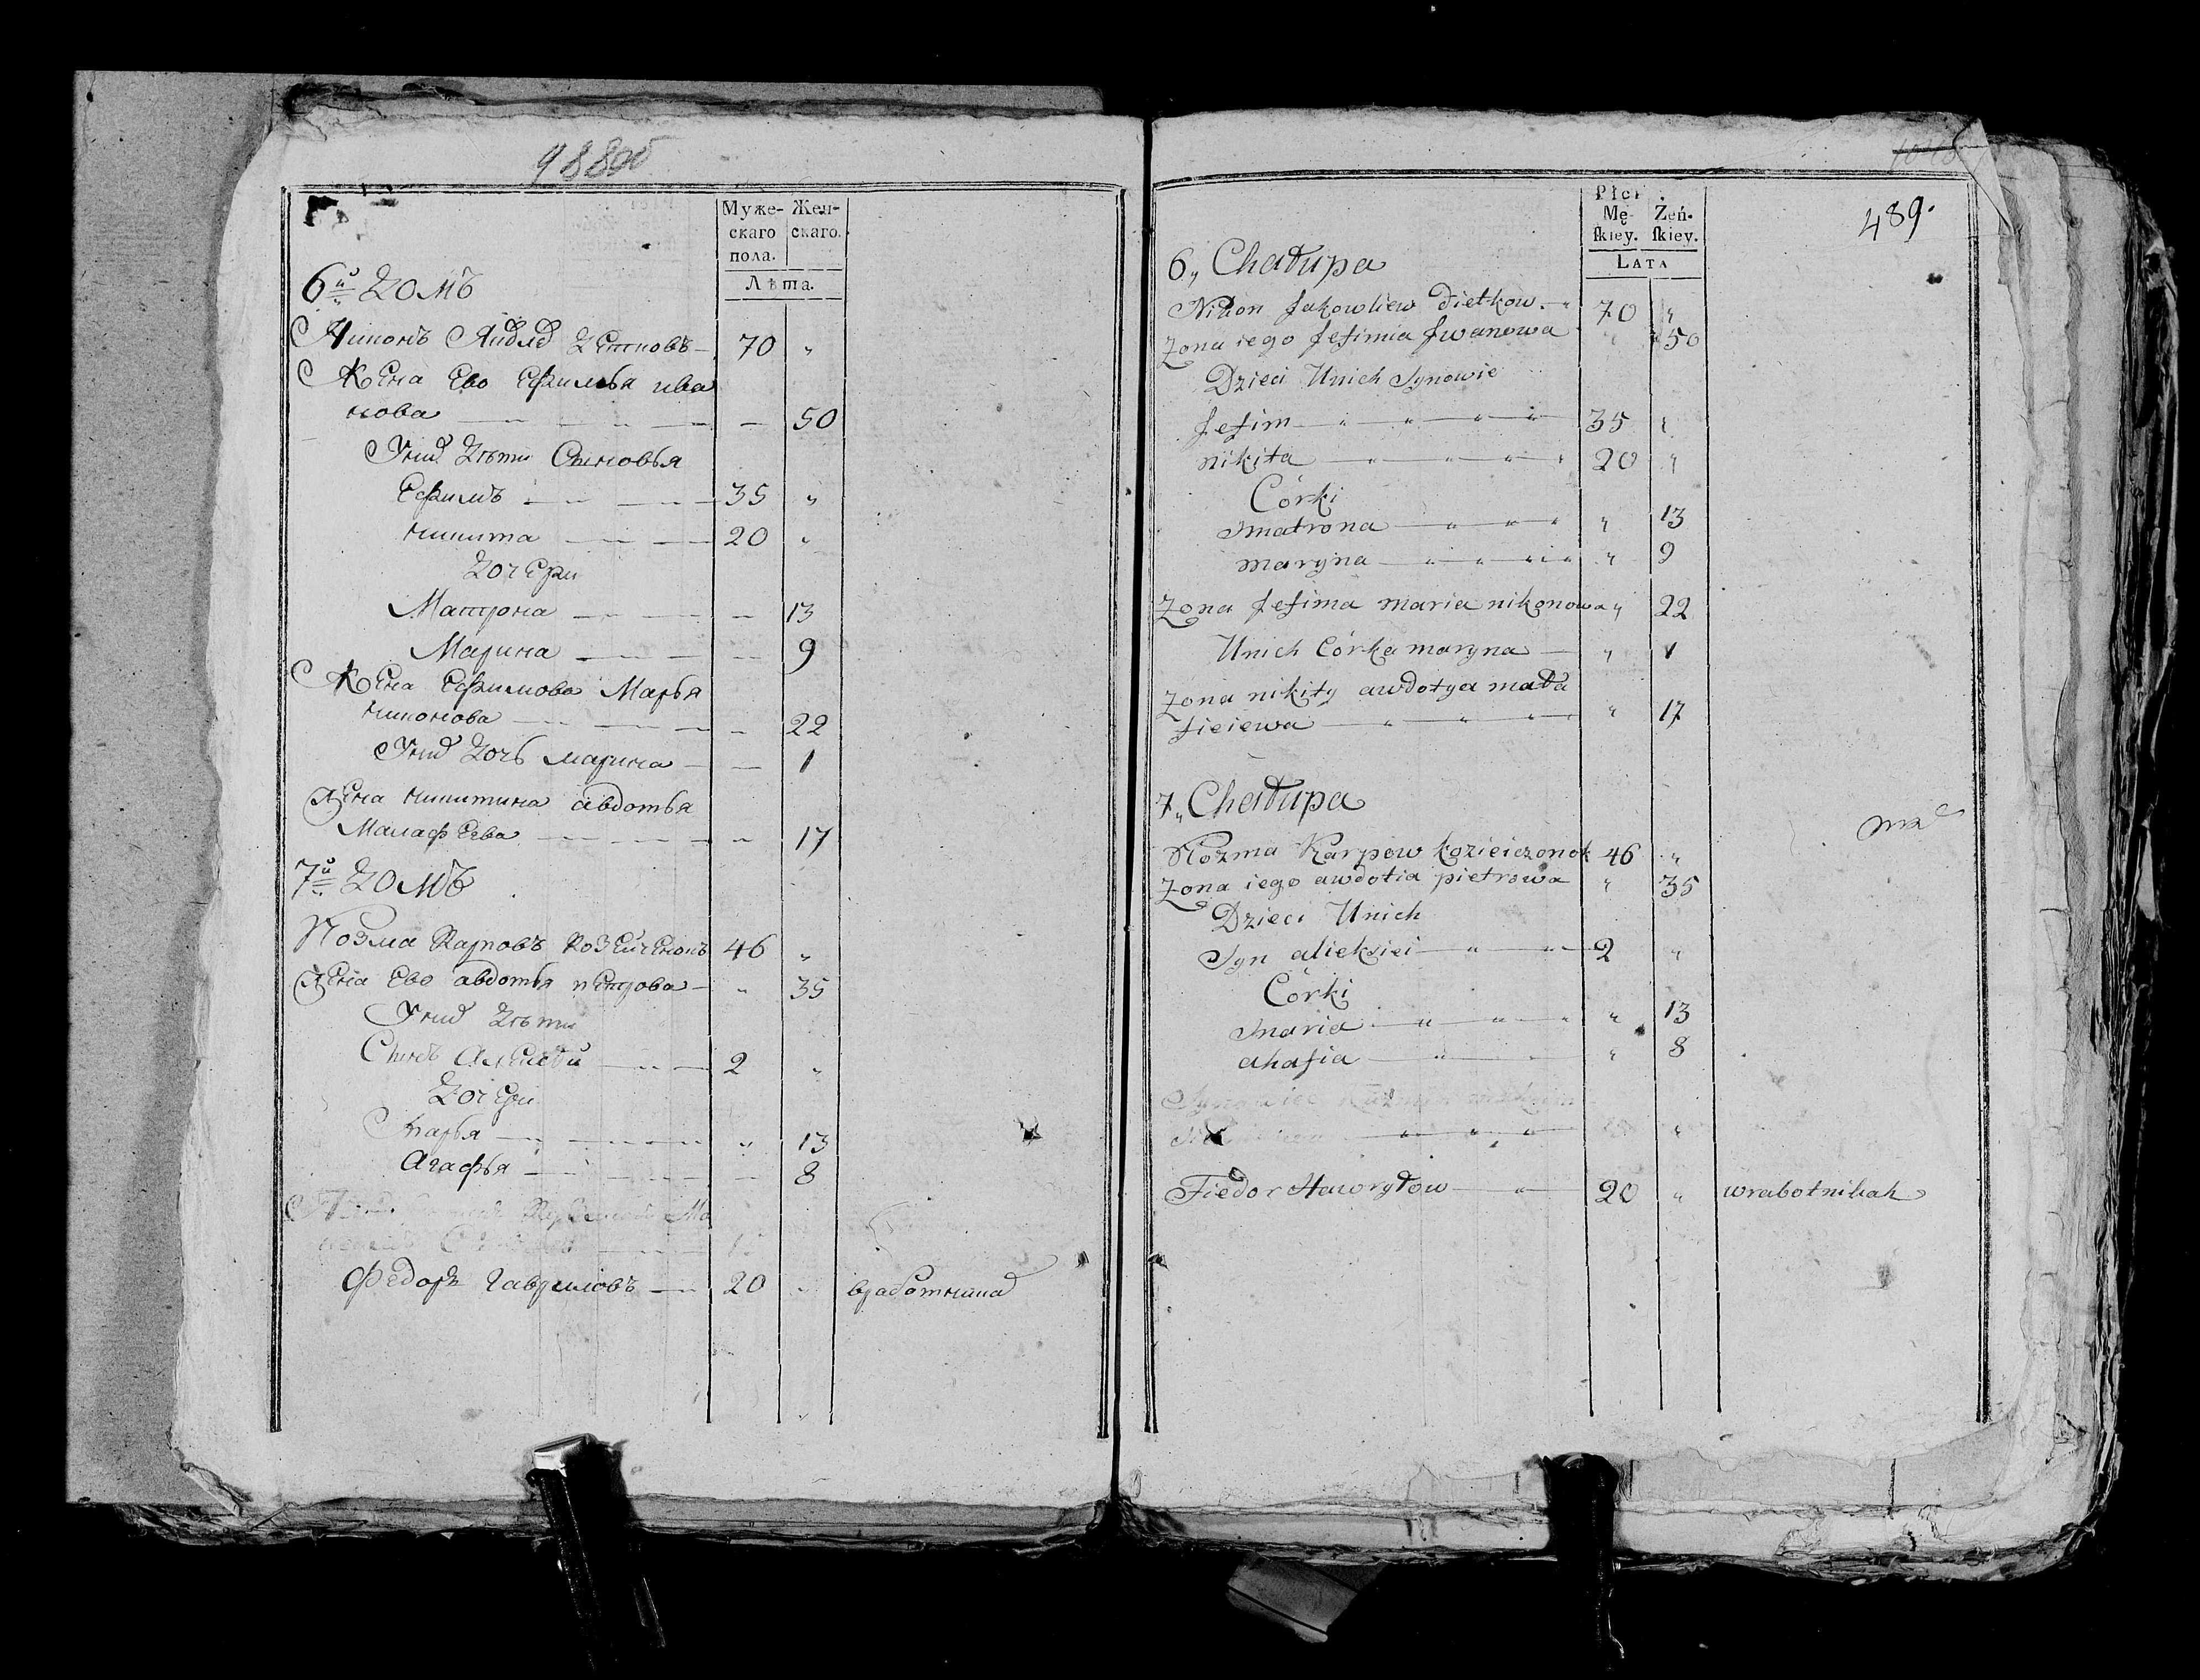 988об
Муже- Жен-
скаго скаго.
пола.
Лѣта.
6й домъ
Никонъ Яковлев Детковъ 70 "
Жена Ево Ефимья ива
нова 50
Уних дѣти Сыновья
Ефимъ 35 "
никита 20 "
дочери
Матрона 13
Марина 9
Жена Ефимова Марья
никонова 22
Уних дочь марина 1
Жена никитина авдотья
Малафеева 17
7й домъ
Козма Карповъ Козейченокъ 46 "
Жена Ево авдотья петрова " 35
Уних дѣти
Сынъ Алексей 2 "
дочери
Марья " 13
Агафья 8
Федоръ гавриловъ 20 " вработниках
Płci
Mę- Żeń-
ſkiey. ſkiey.
LATA
489.
6 „ Chałupa
Nikon Jakowliew Dietkow 70 "
Zona iego Jefimia Jwanowa " 50
Dzieci Unich Synowie
Jefim 35 "
nikita 20 "
Córki
Matrona " 13
maryna " 9
Zona Jefima maria nikonowa " 22
Unich Córka maryna " 1
Zona nikity awdotya mała
fieiewa " 17
7 „ Chałupa
Kozma Karpow kozieiczonok 46 "
Zona iego awdotia pietrowa " 35
Dzieci Unich
Syn alieksiei 2 "
Córki
Maria " 13
ahafia " 8
Fiedor Hawryłow 20 " wrabotnikah